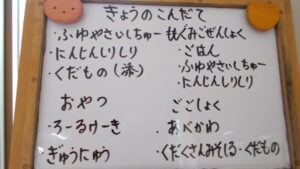 きょうのこんだて
・ふゆやさいしちゅー
・にんじんしりしり
・くだもの(添)
おやつ
・ろーるけーき
・ぎゅうにゅう
もぐみごぜんしょく
・ごはん
・ふゆやさいしちゅー
・にんじんしりしり
ごごしょく
・あべかわ
・くだくさんみそしる・くだもの